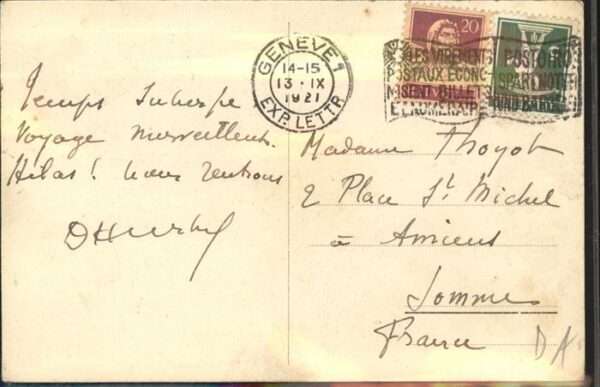 GENÈVE 1
14-15
13·IX
1921
EXP. LETTR.
20
LES VIREMENTS
POSTAUX ECONO
MISENT BILLETS
ET NUMERAIRE
POSTGIRO
SPART NOTEN
UND BARGELD
Temps Superbe
Voyage merveilleux.
Hélas! nous rentrons
Madame Thoyot
2 Place St Michel
à Amiens
Somme
France